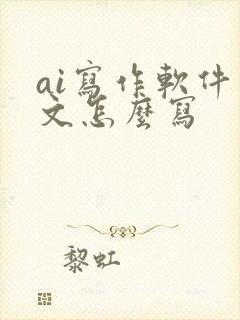 ai寫作軟件
文怎麼寫
黎虹